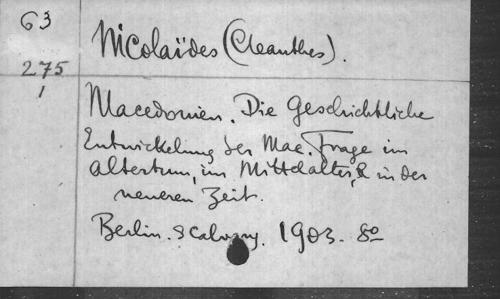 63
Nicolaïdes (Cleanthes).
275
1
Macedonien. Die Geschichtliche
Entwickelung der Mac. Frage im
altertum, im Mittelalter, & in der
neueren Zeit.
Berlin. S Calvary. 1903. 8º